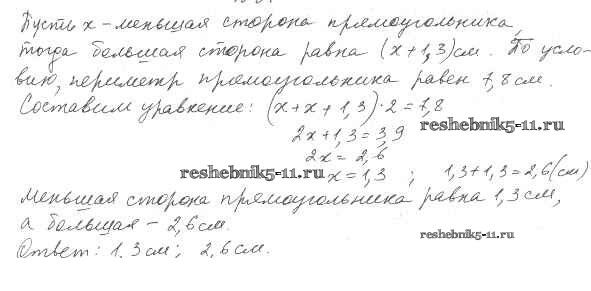 Пусть x - меньшая сторона прямоугольника,
тогда большая сторона равна (x+1,3) см. По усло-
вию, периметр прямоугольника равен 7,8 см.
Составим уравнение: (x+x+1,3)·2=7,8
2x+1,3=3,9
reshebnik5-11.ru
2x=2,6
reshebnik5-11.ru
x=1,3 ; 1,3+1,3=2,6(см)
Меньшая сторона прямоугольника равна 1,3 см,
а большая - 2,6 см.
reshebnik5-11.ru
Ответ: 1.3 см; 2,6 см.